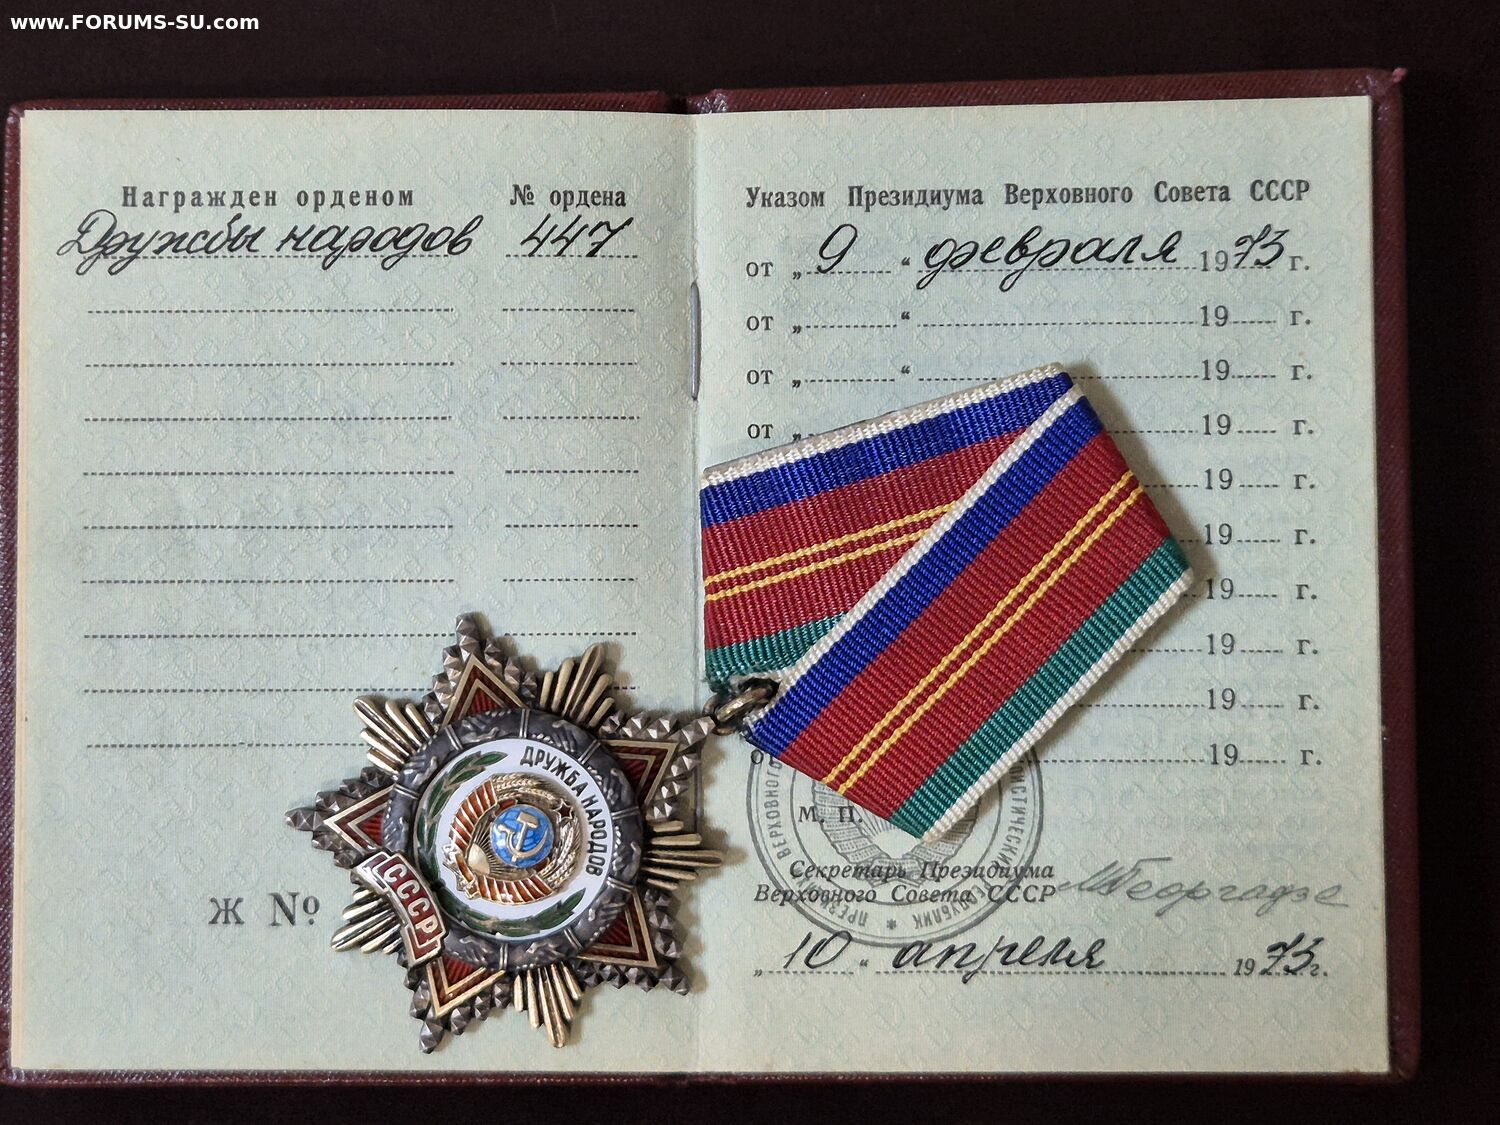 www.FORUMS-SU.com
Награжден орденом № ордена
Дружбы народов 447
Указом Президиума Верховного Совета СССР
от „ 9 “ февраля 1973 г.
от „ “ 19 г.
от „ “ 19 г.
от „ 19 г.
19 г.
19 г.
19 г.
19 г.
19 г.
от 19 г.
ДРУЖБА НАРОДОВ
СССР
Ж №
М. П.
ВЕРХОВНОГО
Секретарь Президиума
Верховного Совета СССР МГеоргадзе
„ 10 “ апреля 1973 г.